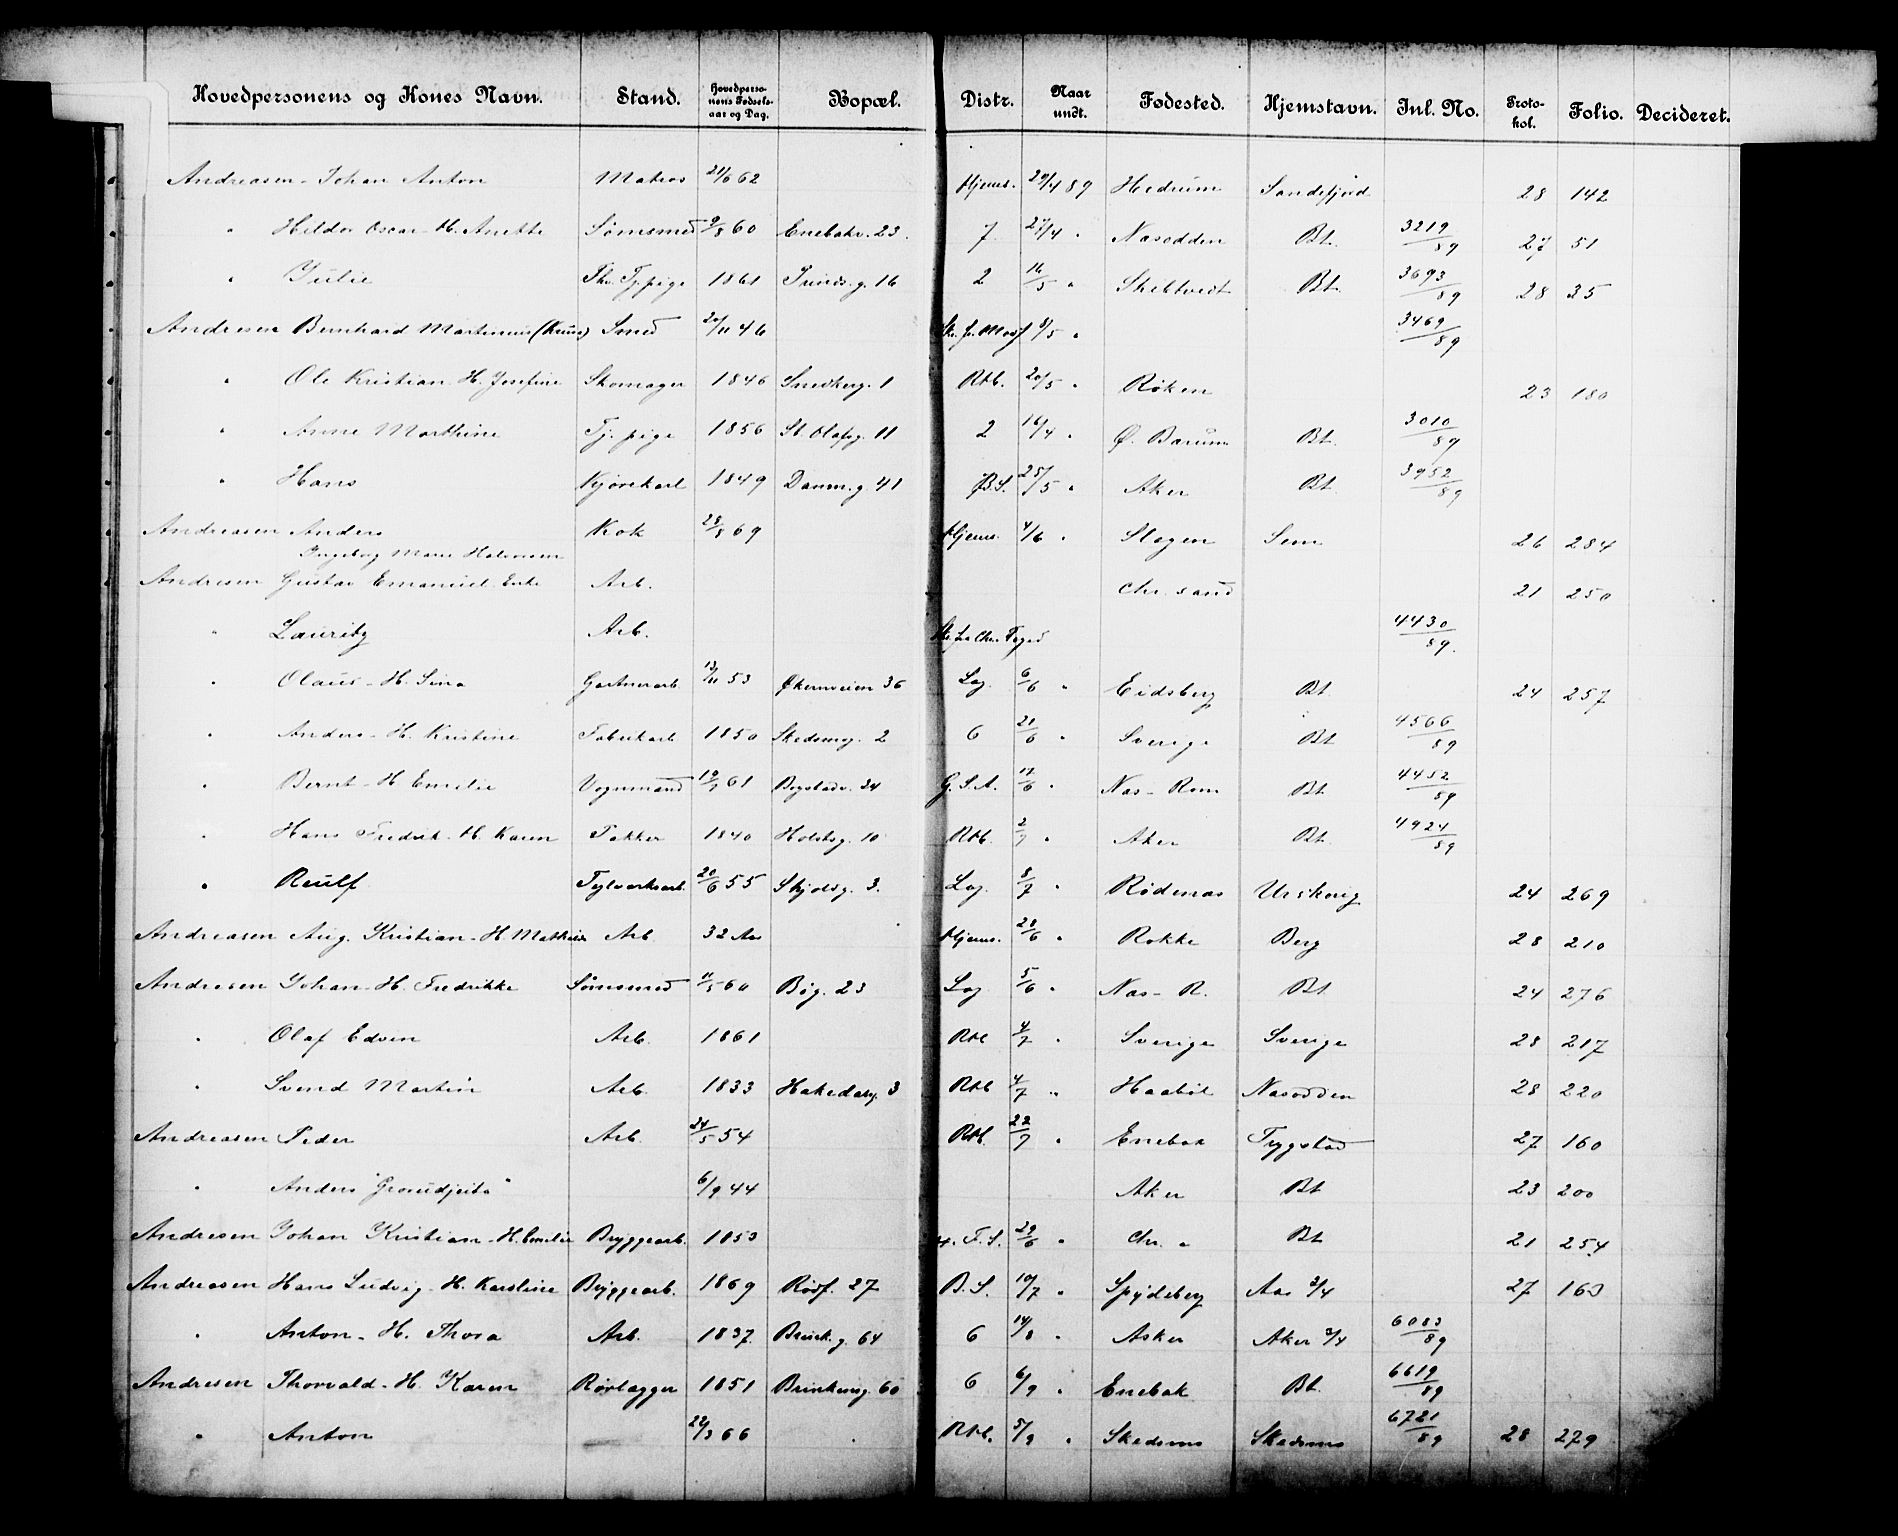 Hovedpersonens og Kones Navn. Stand. Hovedperso-nens Fødsels-aar og Dag. Bopæl. Distr. Naar undt. Fødested. Hjemstavn. Inl. No. Proto-kol. Folio. Decideret.
Andreasen - Johan Anton Matros 21/6 62 Hjems. 29/4 89 Hedrum Sandefjord 28 142
" Hildor Oscar - H. Anette Sømsmed 9/8 60 Enebakv. 23. 7 27/4 " Nasodden Bt. 3219/89 27 51
" Julie Fhv. Tj.pige 1861 16 2 16/5 " Skibtvedt Bt. 3693/89 28 35
Andresen Bernhard Martinius (Kruus) Smed 20/11 46 8/5 " 3469/89
" Ole Kristian - H. Josefine Skomager 1846 Smedberg. 1 Rtb. 20/5 " Røken 23 180
" Anne Marthine Tj. pige 1856 St. Olafsg. 11 2 16/4 " Ø. Barum Bt. 3010/89
" Hans Kjørekarl 1849 Danm.g. 41 B.S. 25/5 " Aker Bt. 3952/89
Andreasen Anders Kok 28/8 69 Hjems. 4/6 " Slagen Sem 26 284
Ingeborg Marie Halvorsen
Andresen Gustav Emanuel Enke Arb. Chr. sand 21 250
" Lauritz Arb. Chr. Foged 4430/89.
" Olaus - H. Sina Gartnerarb. 13/11 53 Økernveien 36 Log. 6/6 " Eidsberg Bt. 24 257
" Anders - H. Kristine Fabrikarb. 1850 Skedsmog. 2 6 21/6 " Sverige Bt. 4566/89
" Bernt - H. Emilie Vognmand 61 Bogstadv. 34 G.S.A. 17/6 " Nas - Rom Bt. 4452/89
" Hans Fredrik - H. Karen Pakker 1840 Holstsg. 10 Rtb. 2/7 " Aker Bt. 4924/89
" Reulf Teglverksarb. 20/6 55 Skjolsg. 3. Log. 8/7 " Rødenas Urskoug 24 269
Andreasen Aug. Kristian - H. Mathilde Arb. 32 Aar Hjems. 28/6 " Rokke Berg 28 210
Andresen Johan - H. Fredrikke Sømsmed 11/5 60 Bøg. 23 Log 5/6 " Nas - R. Bt. 24 276
" Olaf Edvin Arb. 1861 Rtb 4/7 " Sverige Sverige 28 217
" Svend Martin Arb. 1833 Hakedalsg. 3 Rtb 4/7 " Haabøl Nasodden 28 220
Andreasen Peder Arb. 24/5 54 Rtb. 22/7 " Enebak Trygstad 27 160
" Anders "Grorudjeita" 6/9 44 Aker Bt 23 200
Andresen Johan Kristian - H. Emelie Bryggearb. 1853 F.S. 29/6 " Chr. a Bt 21 254
Andreasen Hans Ludvig - H. Karoline Bryggearb. 1869 Rosf. 27 B.S. 10/7 " Spydeberg Aas 3/4 27 163
" Anton - H. Thora Arb. 1837 Brinck.g. 64 6 14/8 " Asker Aker 3/4 6083/89
Andresen Thorvald - H. Karen Rørlægger 1851 Brinkensg. 60 6 6/9 " Enebak Bt. 6619/89
" Anton 22/3 66 Rtb. 5/9 " Skedsmo Skedsmo 6721/89 28 279